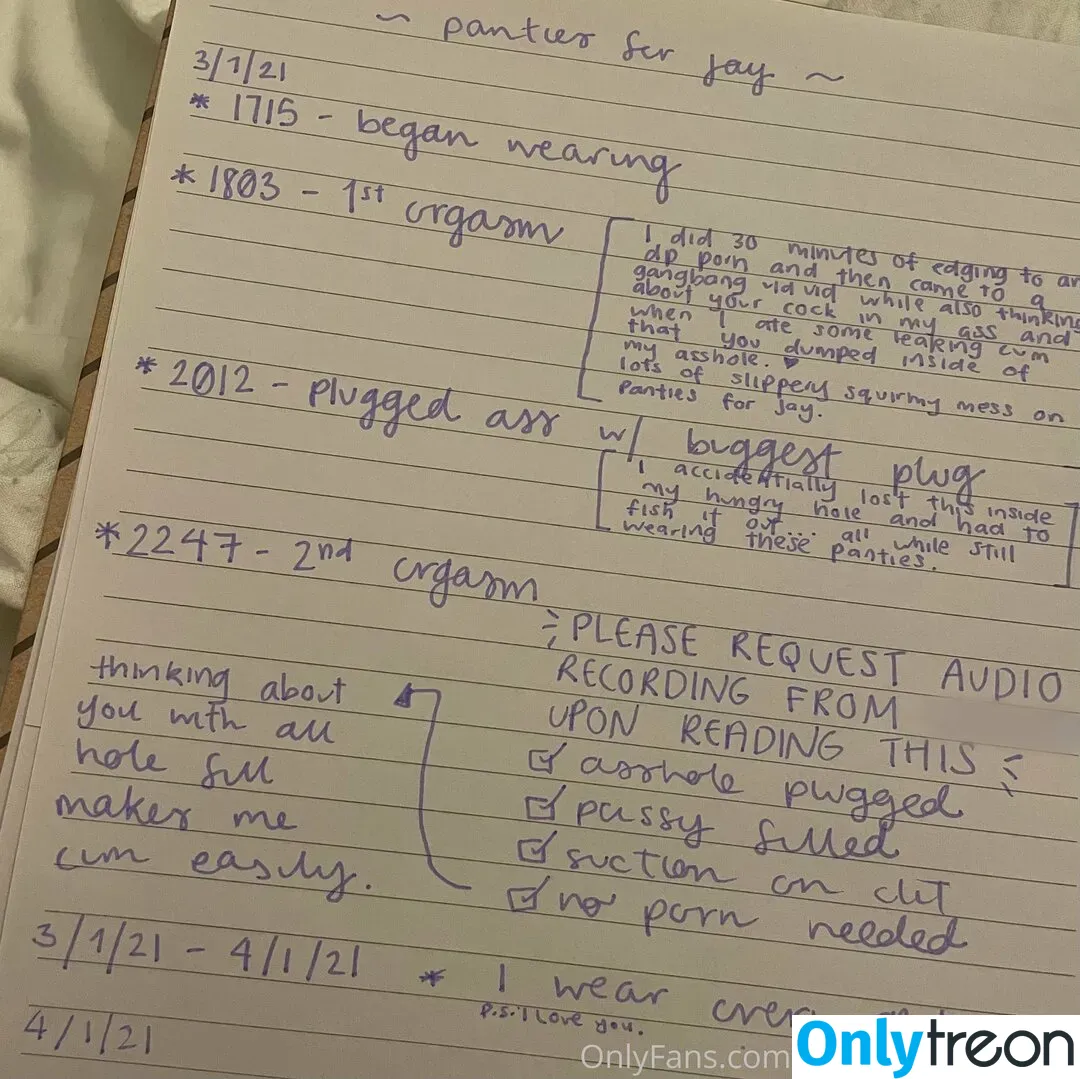 ~ panties for jay ~
3/1/21
* 1715 - began wearing
* 1803 - 1st orgasm
I did 30 minutes of edging to an
dp porn and then came to a
gangbang vid vid while also thinking
about your cock in my ass and
when I ate some leaking cum
that you dumped inside of
my asshole. ♥
lots of slippery squirmy mess on
panties for Jay.
* 2012 - plugged ass w/ biggest plug
I accidentially lost this inside
my hungry hole and had to
fish it out.... all while still
wearing these panties.
* 2247 - 2nd orgasm
PLEASE REQUEST AUDIO
RECORDING FROM
UPON READING THIS
☑ asshole plugged
☑ pussy filled
☑ suction on clit
☑ no porn needed
thinking about
you with all
hole full
makes me
cum easily.
3/1/21 - 4/1/21 * I wear
p.s. I love you.
4/1/21
OnlyFans.com
Onlytreon